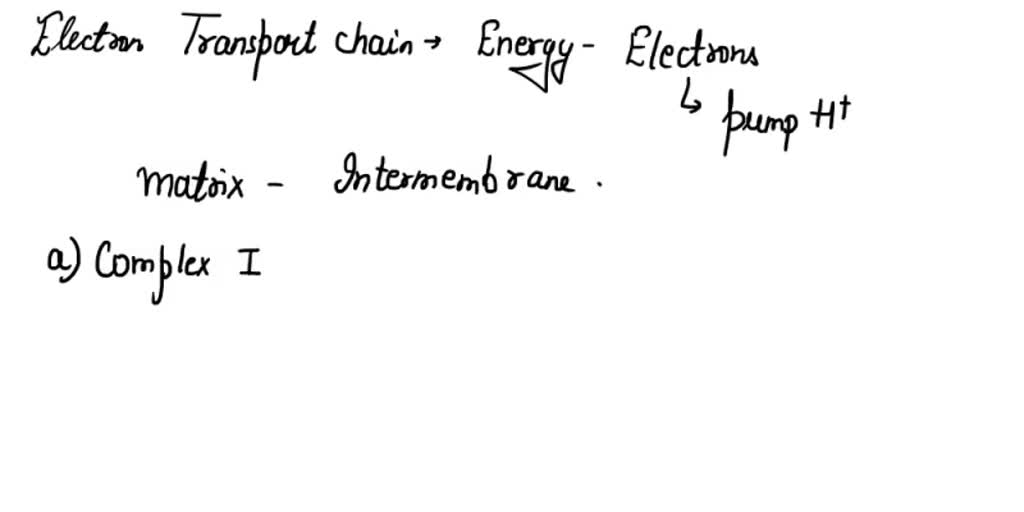 Electron Transport chain → Energy - Electrons
↳ pump H+
matrix - Intermembrane .
a) Complex I